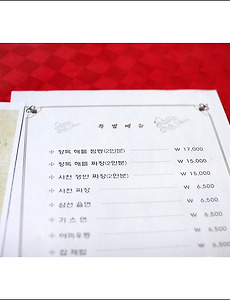 특 별 메 뉴
÷ 항목 해물 짬뽕(2인분) ₩ 17,000
÷ 항목 해물 짜장(2인분) ₩ 15,000
÷ 사천 쟁반 짜장(2인분) ₩ 15,000
÷ 사천 짜장 ₩ 6,500
÷ 삼선 울면 ₩ 6,500
÷ 기 스 면 ₩ 6,500
÷ ₩ 6,500
÷ 잡 채 밥